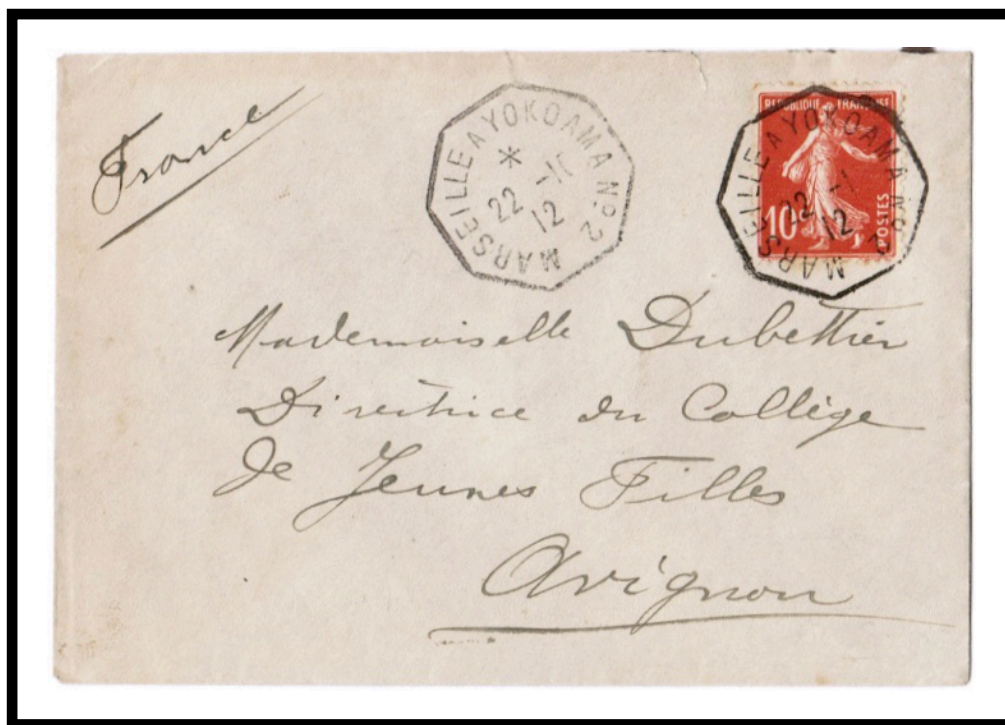 France
MARSEILLE A YOKOAMA Nº 2
*
22 -1
12
REPUBLIQUE FRANÇAISE
10c
POSTES
MARSEILLE A YOKOAMA Nº 2
22 -1
12
Mademoiselle Dubettier
Directrice du Collège
de Jeunes Filles
Avignon